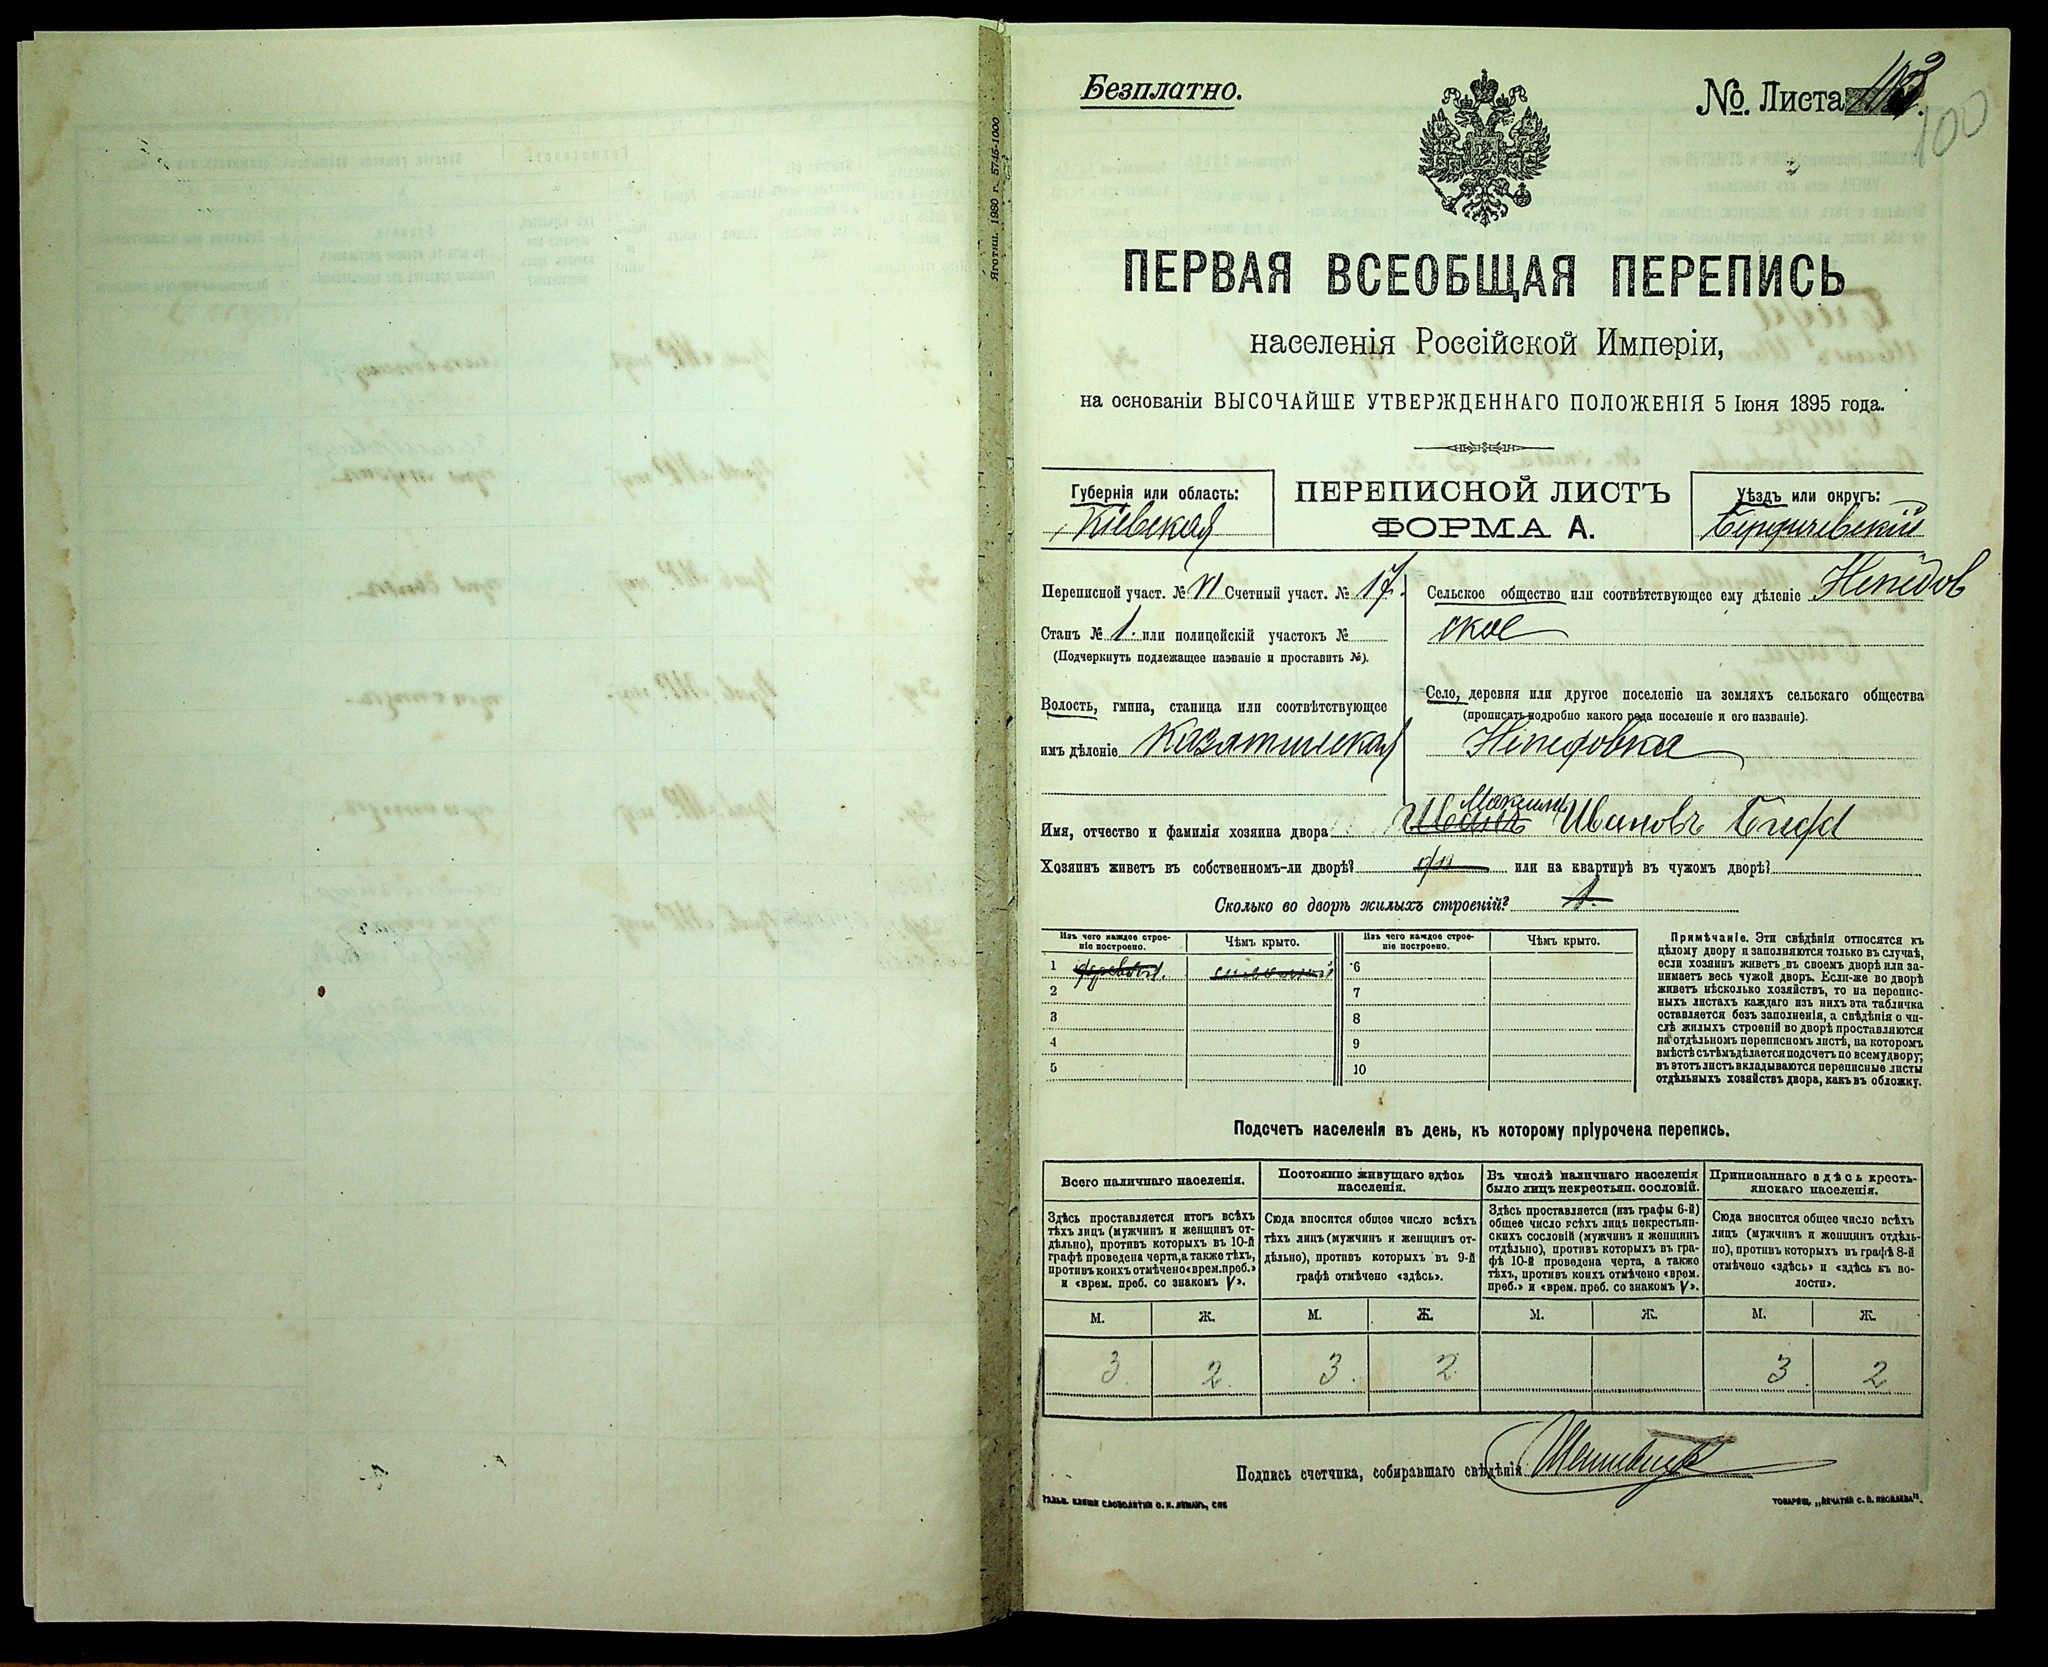 Безплатно.
№ Листа 103.
100
ПЕРВАЯ ВСЕОБЩАЯ ПЕРЕПИСЬ
населенія Россійской Имперіи,
на основаніи ВЫСОЧАЙШЕ УТВЕРЖДЕННАГО ПОЛОЖЕНІЯ 5 Іюня 1895 года.
Губернія или область:
Кіевская
ПЕРЕПИСНОЙ ЛИСТЪ
ФОРМА А.
Уѣздъ или округъ:
Бердичевскій
Переписной участ. № VI Счетный участ. № 17.
Станъ № 1. или полицейскій участокъ №
(Подчеркнуть подлежащее названіе и проставить №).
Волость, гмина, станица или соотвѣтствующее
имъ дѣленіе Казатинская
Сельское общество или соотвѣтствующее ему дѣленіе Непедов
ское
Село, деревня или другое поселеніе на земляхъ сельскаго общества
(прописать подробно какого рода поселеніе и его названіе).
Непедовка
Максимъ
Имя, отчество и фамилія хозяина двора Иванъ Ивановъ
Хозяинъ живетъ въ собственномъ-ли дворѣ? да или на квартирѣ въ чужомъ дворѣ?
Сколько во дворѣ жилыхъ строеній? 1.
Изъ чего каждое строе-
ніе построено.
Чѣмъ крыто.
Изъ чего каждое строе-
ніе построено.
Чѣмъ крыто.
1 6
2 7
3 8
4 9
5 10
Примѣчаніе. Эти свѣдѣнія относятся къ
цѣлому двору и заполняются только въ случаѣ,
если хозяинъ живетъ въ своемъ дворѣ или за-
нимаетъ весь чужой дворъ. Если-же во дворѣ
живетъ нѣсколько хозяйствъ, то на перепис-
ныхъ листахъ каждаго изъ нихъ эта табличка
оставляется безъ заполненія, а свѣдѣнія о чи-
слѣ жилыхъ строеній во дворѣ проставляются
на отдѣльномъ переписномъ листѣ, на которомъ
вмѣстѣ съ тѣмъ дѣлается подсчетъ по всему двору;
въ этотъ листъ вкладываются переписные листы
отдѣльныхъ хозяйствъ двора, какъ въ обложку.
Подсчетъ населенія въ день, къ которому пріурочена перепись.
Всего наличнаго населенія.
Здѣсь проставляется итогъ всѣхъ
тѣхъ лицъ (мужчинъ и женщинъ от-
дѣльно), противъ которыхъ въ 10-й
графѣ проведена черта, а также тѣхъ,
противъ коихъ отмѣчено «врем. преб.»
и «врем. преб. со знакомъ V».
Постоянно живущаго здѣсь
населенія.
Сюда вносится общее число всѣхъ
тѣхъ лицъ (мужчинъ и женщинъ от-
дѣльно), противъ которыхъ въ 9-й
графѣ отмѣчено «здѣсь».
Въ числѣ наличнаго населенія
было лицъ некрестьян. сословій.
Здѣсь проставляется (изъ графы 6-й)
общее число всѣхъ лицъ некрестьян-
скихъ сословій (мужчинъ и женщинъ
отдѣльно), противъ которыхъ въ гра-
фѣ 10-й проведена черта, а также
тѣхъ, противъ коихъ отмѣчено «врем.
преб.» и «врем. преб. со знакомъ V».
Приписаннаго здѣсь кресть-
янскаго населенія.
Сюда вносится общее число всѣхъ
лицъ (мужчинъ и женщинъ отдѣль-
но), противъ которыхъ въ графѣ 8-й
отмѣчено «здѣсь» и «здѣсь къ во-
лости».
М. Ж. М. Ж. М. Ж. М. Ж.
3 2 3 2 3 2
Подпись счетчика, собиравшаго свѣдѣнія
ГАЛЬВ. КЛИШЕ СЛОВОЛИТНИ О. И. ЛЕМАНЪ, СПБ
ТОВАРИЩ. „ПЕЧАТНЯ С. П. ЯКОВЛЕВА".
Яготин. 1980 г. 5745-1000